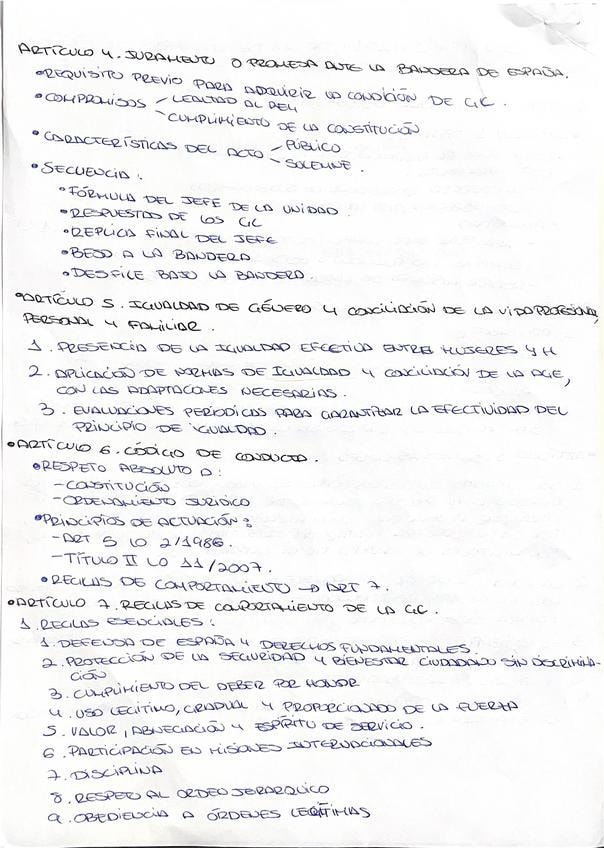 ARTÍCULO 4. JURAMENTO O PROMESA ANTE LA BANDERA DE ESPAÑA.
• REQUISITO PREVIO PARA ADQUIRIR LA CONDICIÓN DE GC.
• COMPROMISOS - LEALTAD AL REY
- CUMPLIMIENTO DE LA CONSTITUCIÓN
• CARACTERÍSTICAS DEL ACTO - PÚBLICO
- SOLEMNE.
• SECUENCIA:
• FÓRMULA DEL JEFE DE LA UNIDAD.
• RESPUESTAS DE LOS GC
• REPLICA FINAL DEL JEFE
• BESO A LA BANDERA
• DESFILE BAJO LA BANDERA.
• ARTÍCULO 5. IGUALDAD DE GÉNERO Y CONCILIACIÓN DE LA VIDA PROFESIONAL,
PERSONAL Y FAMILIAR.
1. PRESENCIA DE LA IGUALDAD EFECTIVA ENTRE MUJERES Y H
2. APLICACIÓN DE NORMAS DE IGUALDAD Y CONCILIACIÓN DE LA AGE,
CON LAS ADAPTACONES NECESARIAS.
3. EVALUACIONES PERIÓDICAS PARA GARANTIZAR LA EFECTIVIDAD DEL
PRINCIPIO DE IGUALDAD.
• ARTÍCULO 6. CÓDIGO DE CONDUCTA.
• RESPETO ABSOLUTO A:
- CONSTITUCIÓN
- ORDENAMIENTO JURÍDICO
• PRINCIPIOS DE ACTUACIÓN:
- ART 5 LO 2/1986.
- TÍTULO II LO 11/2007.
• REGLAS DE COMPORTAMIENTO → ART 7.
• ARTÍCULO 7. REGLAS DE COMPORTAMIENTO DE LA GC.
1. REGLAS ESENCIALES:
1. DEFENSA DE ESPAÑA Y DERECHOS FUNDAMENTALES.
2. PROTECCIÓN DE LA SEGURIDAD Y BIENESTAR CIUDADANO SIN DISCRIMINA-
CIÓN
3. CUMPLIMIENTO DEL DEBER POR HONOR
4. USO LEGÍTIMO, GRADUAL Y PROPORCIONADO DE LA FUERZA
5. VALOR, ABNEGACIÓN Y ESPÍRITU DE SERVICIO.
6. PARTICIPACIÓN EN MISIONES INTERNACIONALES
7. DISCIPLINA
8. RESPETO AL ORDEN JERARQUICO
9. OBEDIENCIA A ÓRDENES LEGÍTIMAS